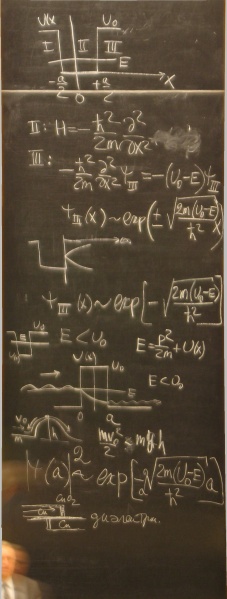 U(x) U₀
I II III
E
-a/2 0 +a/2 x
II: H = -ħ²/2m ∂²/∂x²
III: -ħ²/2m ∂²/∂x² Ψ_III = -(U₀-E)Ψ_III
Ψ_III(x) ~ exp(± √(2m(U₀-E)/ħ²) x
Ψ_III(x) ~ exp[-√(2m(U₀-E)/ħ²)
U₀ E < U₀ E = p²/2m + U(x)
U(x) U₀
E < U₀
E
0 a
v₀
m
mv₀²/2 ≤ mgh
|Ψ(a)|² ~ exp[-2√(2m(U₀-E)/ħ²) a]
CuO₂
Cu
Cu диэлектрик